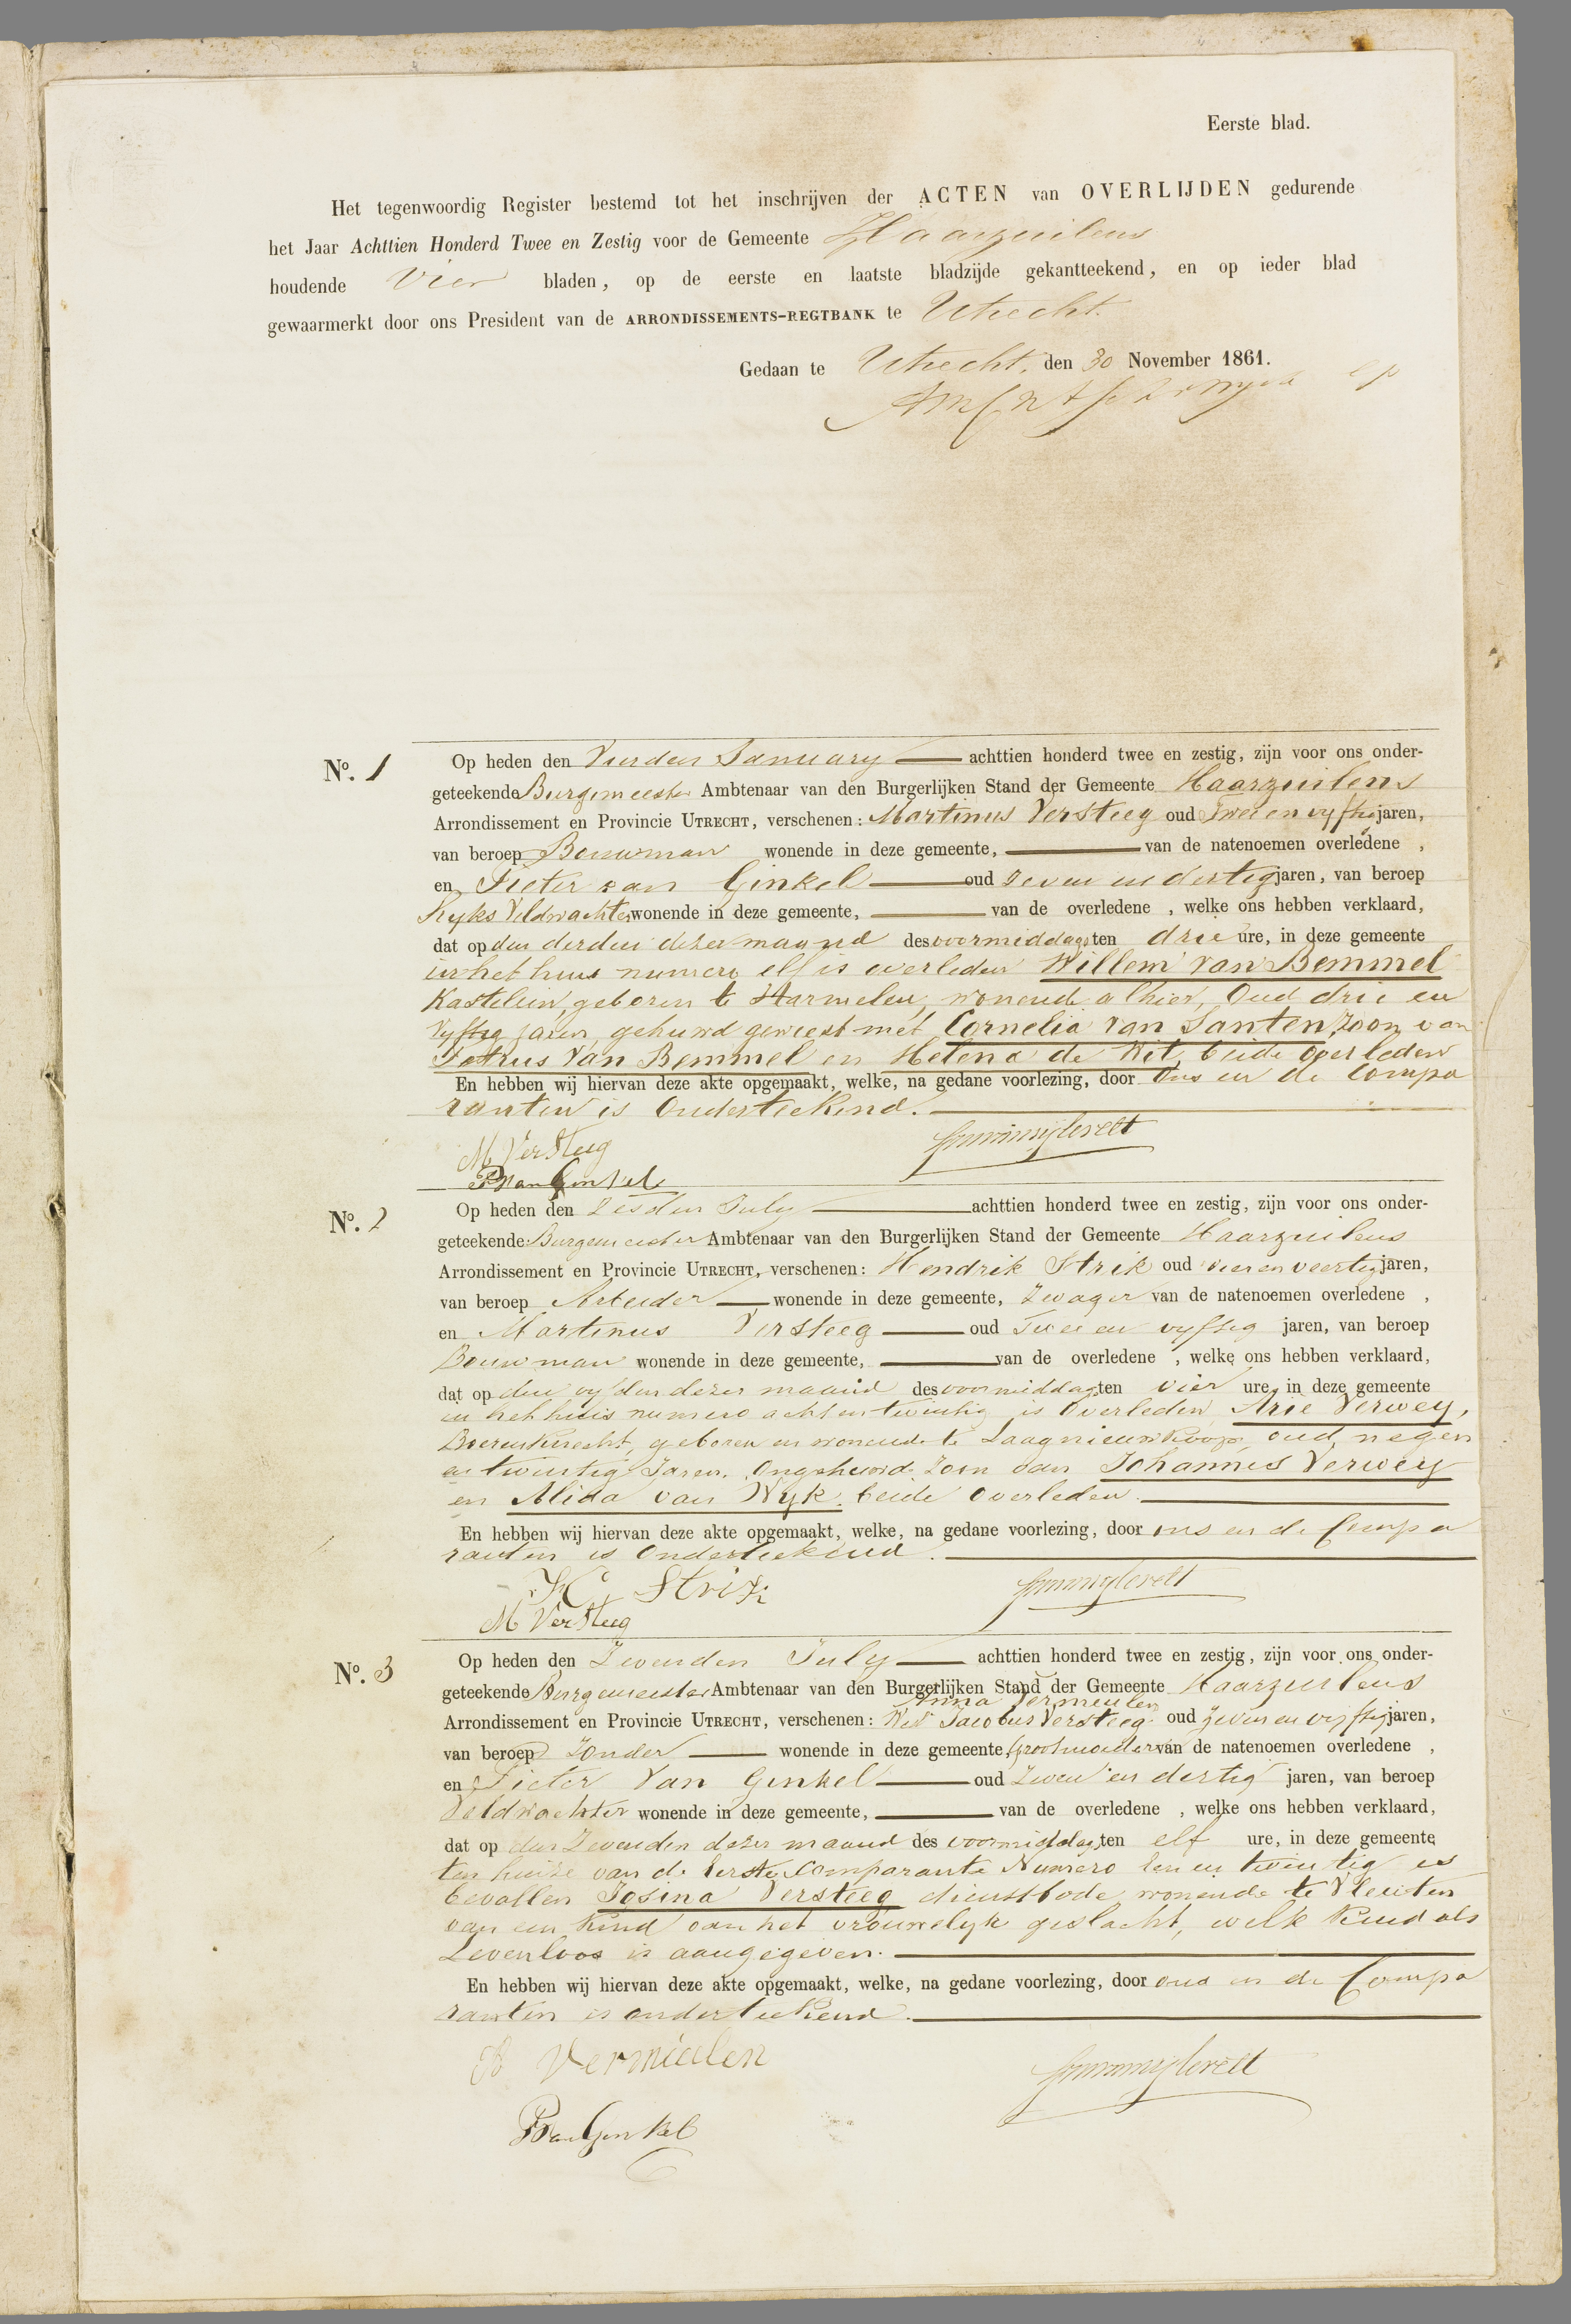 Eerste blad.
Het tegenwoordig Register bestemd tot het inschrijven der ACTEN van OVERLIJDEN gedurende
het Jaar Achttien Honderd Twee en Zestig voor de Gemeente Haarzuilens
houdende Vier bladen, op de eerste en laatste bladzijde gekantteekend, en op ieder blad
gewaarmerkt door ons President van de ARRONDISSEMENTS-REGTBANK te Utrecht.
Gedaan te Utrecht, den 30 November 1861.
No. 1
Op heden den Vierden January achttien honderd twee en zestig, zijn voor ons onder-
geteekende Burgemeester Ambtenaar van den Burgerlijken Stand der Gemeente Haarzuilens
Arrondissement en Provincie UTRECHT, verschenen: Martinus Versteeg oud Twee en vyftig jaren,
van beroep Bouwman wonende in deze gemeente, van de natenoemen overledene ,
en Pieter van Ginkel oud zeven en dertig jaren, van beroep
Ryks Veldwachter wonende in deze gemeente, van de overledene , welke ons hebben verklaard,
dat op den derden dezer maand des voormiddags ten drie ure, in deze gemeente
in het huis numero elf is overleden Willem van Bemmel
Kastelein, geboren te Harmelen, wonende alhier, Oud drie en
vyftig jaren, gehuwd geweest met Cornelia van Santen, Zoon van
Petrus van Bemmel en Helena de Wit, beide Overleden
En hebben wij hiervan deze akte opgemaakt, welke, na gedane voorlezing, door Ons en de Compa
ranten is Onderteekend.
M VerSteeg
P van Ginkel
No. 2
Op heden den Zesden July achttien honderd twee en zestig, zijn voor ons onder-
geteekende Burgemeester Ambtenaar van den Burgerlijken Stand der Gemeente Haarzuilens
Arrondissement en Provincie UTRECHT, verschenen: Hendrik Strik oud vier en veertig jaren,
van beroep Arbeider wonende in deze gemeente, Zwager van de natenoemen overledene ,
en Martinus Versteeg oud Twee en vyftig jaren, van beroep
Bouwman wonende in deze gemeente, van de overledene , welke ons hebben verklaard,
dat op den vyfden dezer maand des voormiddags ten vier ure, in deze gemeente
in het huis numero acht en twintig is Overleden Arie Verwey,
Boerenknecht, geboren en wonende te Laagnieuwkoop, oud negen
en twintig Jaren. Ongehuwd. Zoon van Johannes Verwey
en Alida van Wyk. beide Overleden.
En hebben wij hiervan deze akte opgemaakt, welke, na gedane voorlezing, door ons en de Compa
ranten is Onderteekend.
H Strik
M VerSteeg
No. 3
Op heden den Zevenden July achttien honderd twee en zestig, zijn voor ons onder-
geteekende Burgemeester Ambtenaar van den Burgerlijken Stand der Gemeente Haarzuilens
Anna Vermeulen
Arrondissement en Provincie UTRECHT, verschenen: Wed Jacobus Versteeg oud zeven en vijftig jaren,
van beroep Zonder wonende in deze gemeente, Grootmoeder van de natenoemen overledene ,
en Pieter van Ginkel oud zeven en dertig jaren, van beroep
Veldwachter wonende in deze gemeente, van de overledene , welke ons hebben verklaard,
dat op den Zevenden dezer maand des voormiddags ten elf ure, in deze gemeente
ten huize van de Eerste Comparante Numero Een en twintig is
bevallen Josina Versteeg dienstbode wonende te Vleuten
van een Kind van het vrouwelyk geslacht, welk Kind als
Levenloos is aangegeven.
En hebben wij hiervan deze akte opgemaakt, welke, na gedane voorlezing, door ons en de Compa
ranten is onderteekend.
A Vermeulen
P van Ginkel